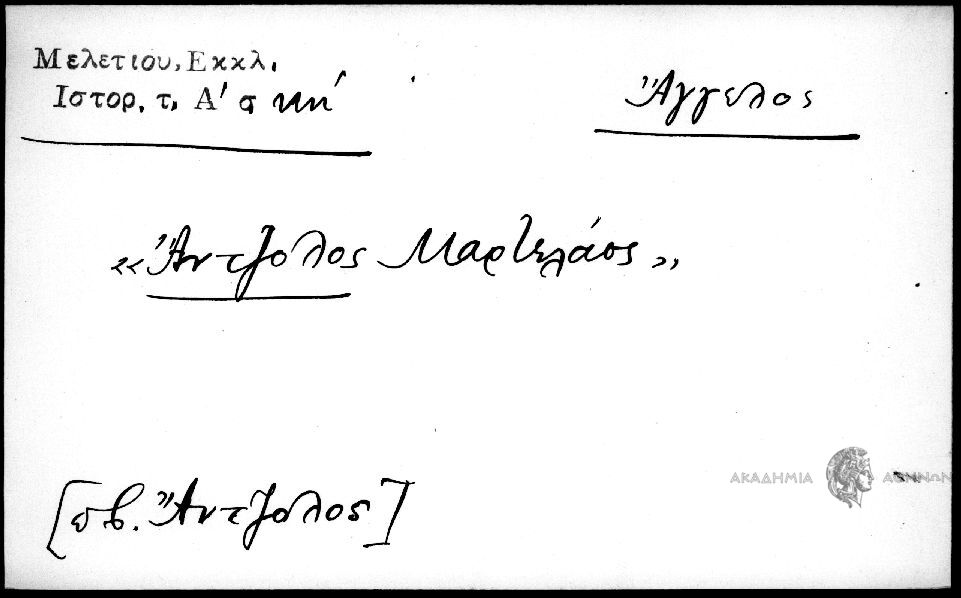 Μελετιου, Εκκλ.
Ιστορ. τ. Α' σ κη'
Ἄγγελος
«Ἄντζολος Μαρτελάος»
[πβ. Ἄντζολος]
ΑΚΑΔΗΜΙΑ ΑΘΗΝΩΝ